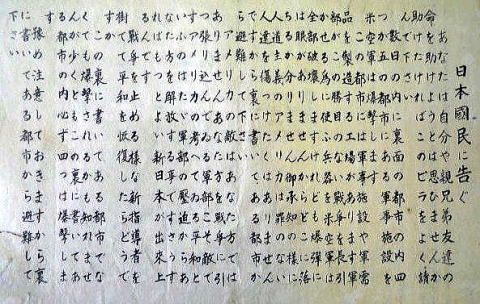 日本國民に告ぐ
あなたは自分や親兄弟友達の
命を助けようとは思ひませんか
助けたければこのビラをよく讀
んで下さい
數日の内に裏面の都市の内四
つか五つの都市にある軍事施設を
米空軍は爆撃します
この都市には軍事施設や軍需
品を製造する工場があります軍
部がこの勝目のない戰爭を長引
かせる為に使ふ兵器を米空軍は
全部破壊しますけれども爆彈に
は眼がありませんからどこに落
ちるか分りません御承知の様に
人道主義のアメリカは罪のない
人達を傷つけたくはありません
ですから裏に書いてある都市か
ら避難して下さい
アメリカの敵はあなた方では
ありませんあなた方を戰爭に引
張り込んでゐる軍部こそ敵で
すアメリカの考へてゐる平和と
いふのはたゞ軍部の壓迫からあ
なた方を解放する事ですさうす
ればもつとよい新日本が出來上
るんです
戰爭を止める様な新指導者を
樹てて平和を恢復したらどうで
すか
この裏に書いてある都市でな
くても爆撃されるかも知れませ
んが少くともこの裏に書いてあ
る都市の内必ず四つは爆撃しま
す
豫め注意しておきますから裏
に書いてある都市から避難して
下さい